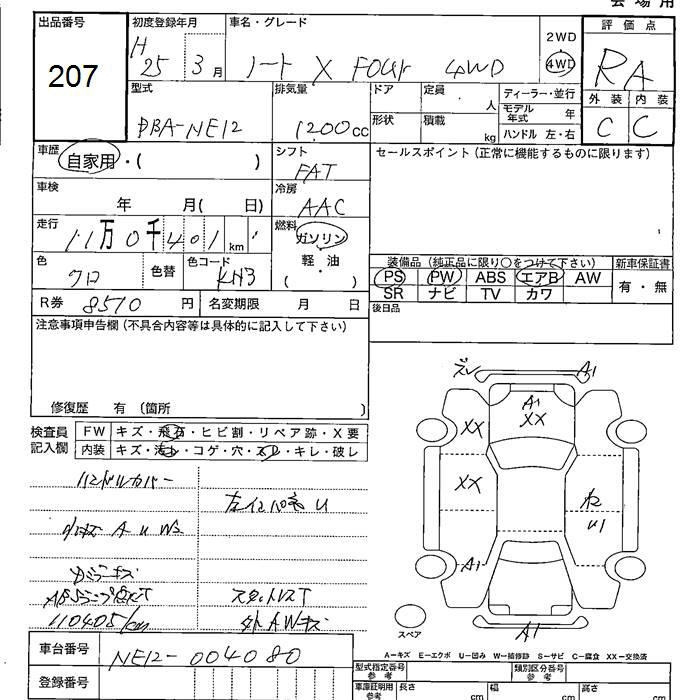 会場用
出品番号 初度登録年月 車名・グレード 評価点
207
H25 3月 ノート X FOUR 4WD 2WD 4WD RA
型式 排気量 ドア 定員 人 ディーラー・並行 外装 内装
DBA-NE12 1200cc 形状 積載 kg モデル年式 年 C C
ハンドル 左・右
車歴 自家用・( ) シフト FAT セールスポイント(正常に機能するものに限ります)
車検 年 月( 日) 冷房 AAC
走行 11万0千401km 燃料 ガソリン 軽・油 ( )
装備品(純正品に限り○をつけて下さい) 新車保証書
色 クロ 色替 色コード KH3 PS PW ABS エアB AW 有・無
SR ナビ TV カワ
R券 8510円 名変期限 月 日 後日品
注意事項申告欄(不具合内容等は具体的に記入して下さい)
修復歴 有 〔箇所 〕
検査員記入欄 FW キズ・飛石・ヒビ割・リペア跡・X要
内装 キズ・汚れ・コゲ・穴・スレ・キレ・破レ
ズレ A1
A1
XX XX
XX
A1
U1
A1
ハンドルカバー
左インパネ U
小キズ A U W2
ガラスキズ
ABSランプ点灯 スタットレスT
110405km 外AWキズ
スペア
A-キズ E-エクボ U-凹み W-補修跡 S-サビ C-腐食 XX-交換済
車台番号 NE12-004080
型式指定番号 参考 類別区分番号 参考
登録番号 車庫証明用 参考 長さ cm 幅 cm 高さ cm